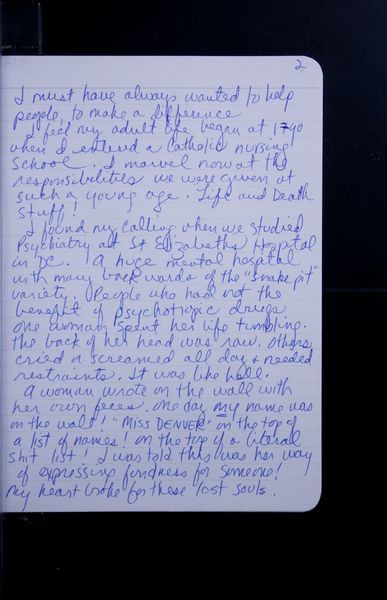 2
I must have always wanted to help
people, to make a difference
I feel my adult life began at 17 90
when I entered a Catholic nursing
school. I marvel now at the
responsibilities we were given at
such a young age. Life and Death
Stuff!
I found my calling when we studied
Psychiatry at St Elizabeths Hospital
in DC. A huge mental hospital
with many back wards of the "snake pit"
variety. People who had not the
benefit of psychotropic drugs.
One woman spent her life tumbling.
The back of her head was raw. Others
cried & screamed all day & needed
restraints. It was like hell.
A woman wrote on the wall with
her own feces. One day my name was
on the wall! "MISS DENVER" on the top of
a list of names! On the top of a literal
shit list! I was told this was her way
of expressing fondness for someone!
My heart broke for these lost souls.